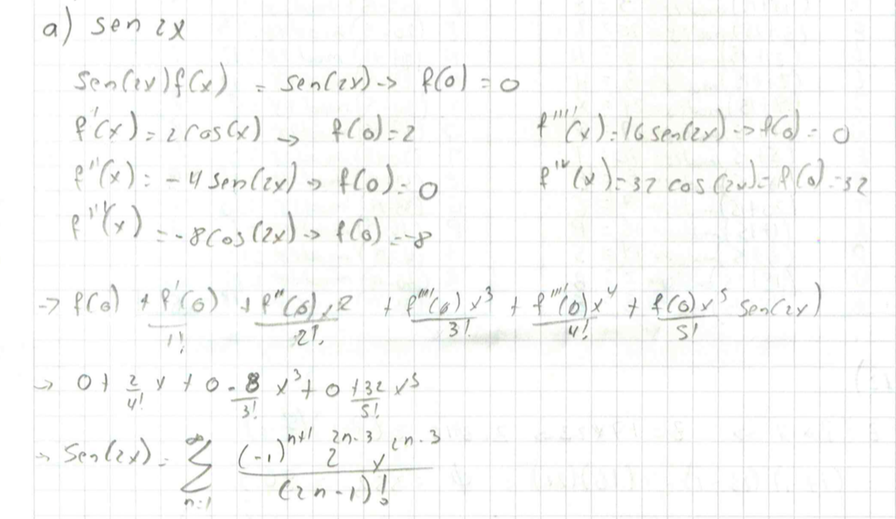 a) sen 2x
sen(2x) f(x) = sen(2x) → f(0) = 0
f'(x) = 2 cos(x) → f(0) = 2
f''(x) = -4 sen(2x) → f(0) = 0
f'''(x) = -8 cos(2x) → f(0) = -8
f''''(x) = 16 sen(2x) → f(0) = 0
f'''''(x) = 32 cos(2x) = f(0) = 32
→ f(0) + f'(0)/1! + f''(0)x^2/2! + f'''(0)x^3/3! + f''''(0)x^4/4! + f(0)x^5/5! sen(2x)
→ 0 + 2/4! x + 0 - 8/3! x^3 + 0 + 32/5! x^5
→ sen(2x) = ∑_{n=1}^{∞} (-1)^{n+1} 2^{2n-3} x^{2n-3} / (2n-1)!